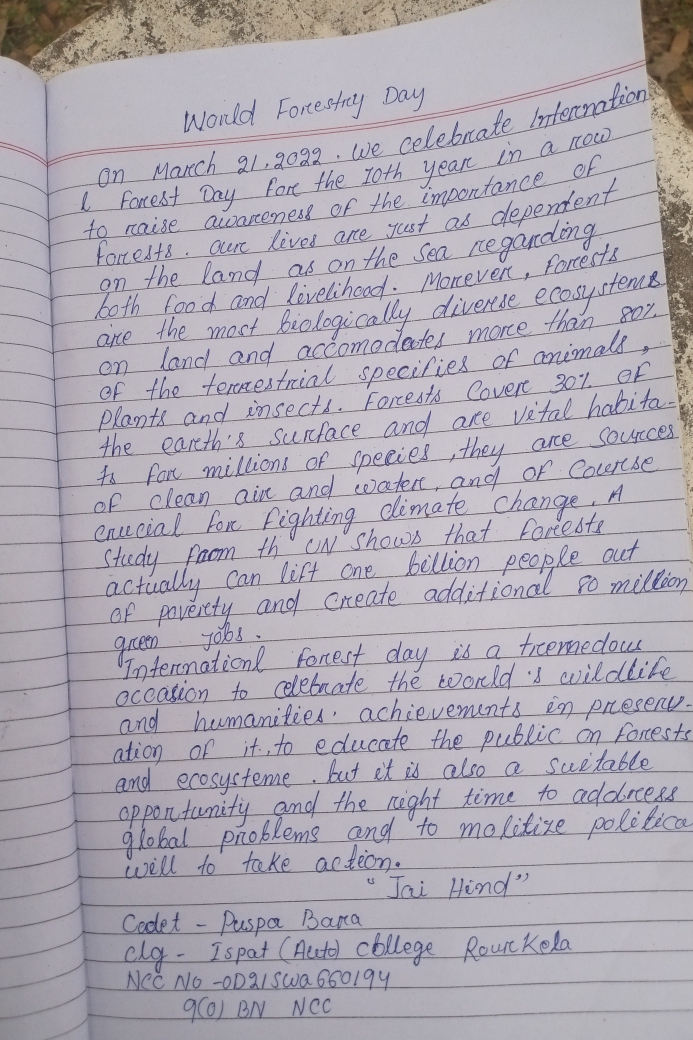 World Forestry Day
On March 21, 2022. We celebrate Internation
l Forest Day for the 10th year in a row
to raise awareness of the importance of
forests. our lives are just as dependent
on the land as on the sea regarding
both food and livelihood. Morever, forests
are the most biologically diverse ecosystems
on land and accomodates more than 80%
of the terrestrial specifies of animals,
Plants and insects. Forests Cover 30% of
the earth's surface and are vital habita-
ts for millions of species, they are sources
of clean air and water, and of Course
crucial for fighting climate change. A
study from th UN shows that forests
actually can lift one billion people out
of poverty and create additional 80 million
green jobs.
Internationl forest day is a tremedous
occasion to celebrate the world's wildlife
and humanities. achievements in preserv-
ation of it, to educate the public on forests
and ecosysteme. but it is also a suitable
opportunity and the right time to address
global problems and to molitize politica
will to take action.
"Jai Hind"
Cadet - Puspa Bara
clg - Ispat (Auto) College Rourkela
NCC No -OD21SWA660194
9(O) BN NCC